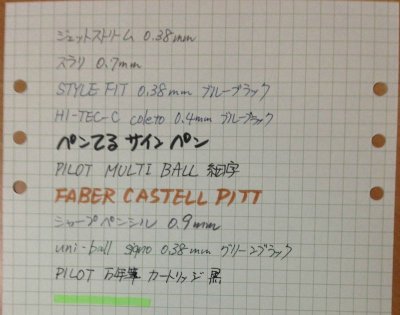 ジェットストリーム 0.38mm
スラリ 0.7mm
STYLE FIT 0.38mm ブルーブラック
HI-TEC-C coleto 0.4mm ブルーブラック
ぺんてる サインペン
PILOT MULTI BALL 細字
FABER CASTELL PITT
シャープペンシル 0.9mm
uni-ball signo 0.38mm グリーンブラック
PILOT 万年筆 カートリッジ 黒